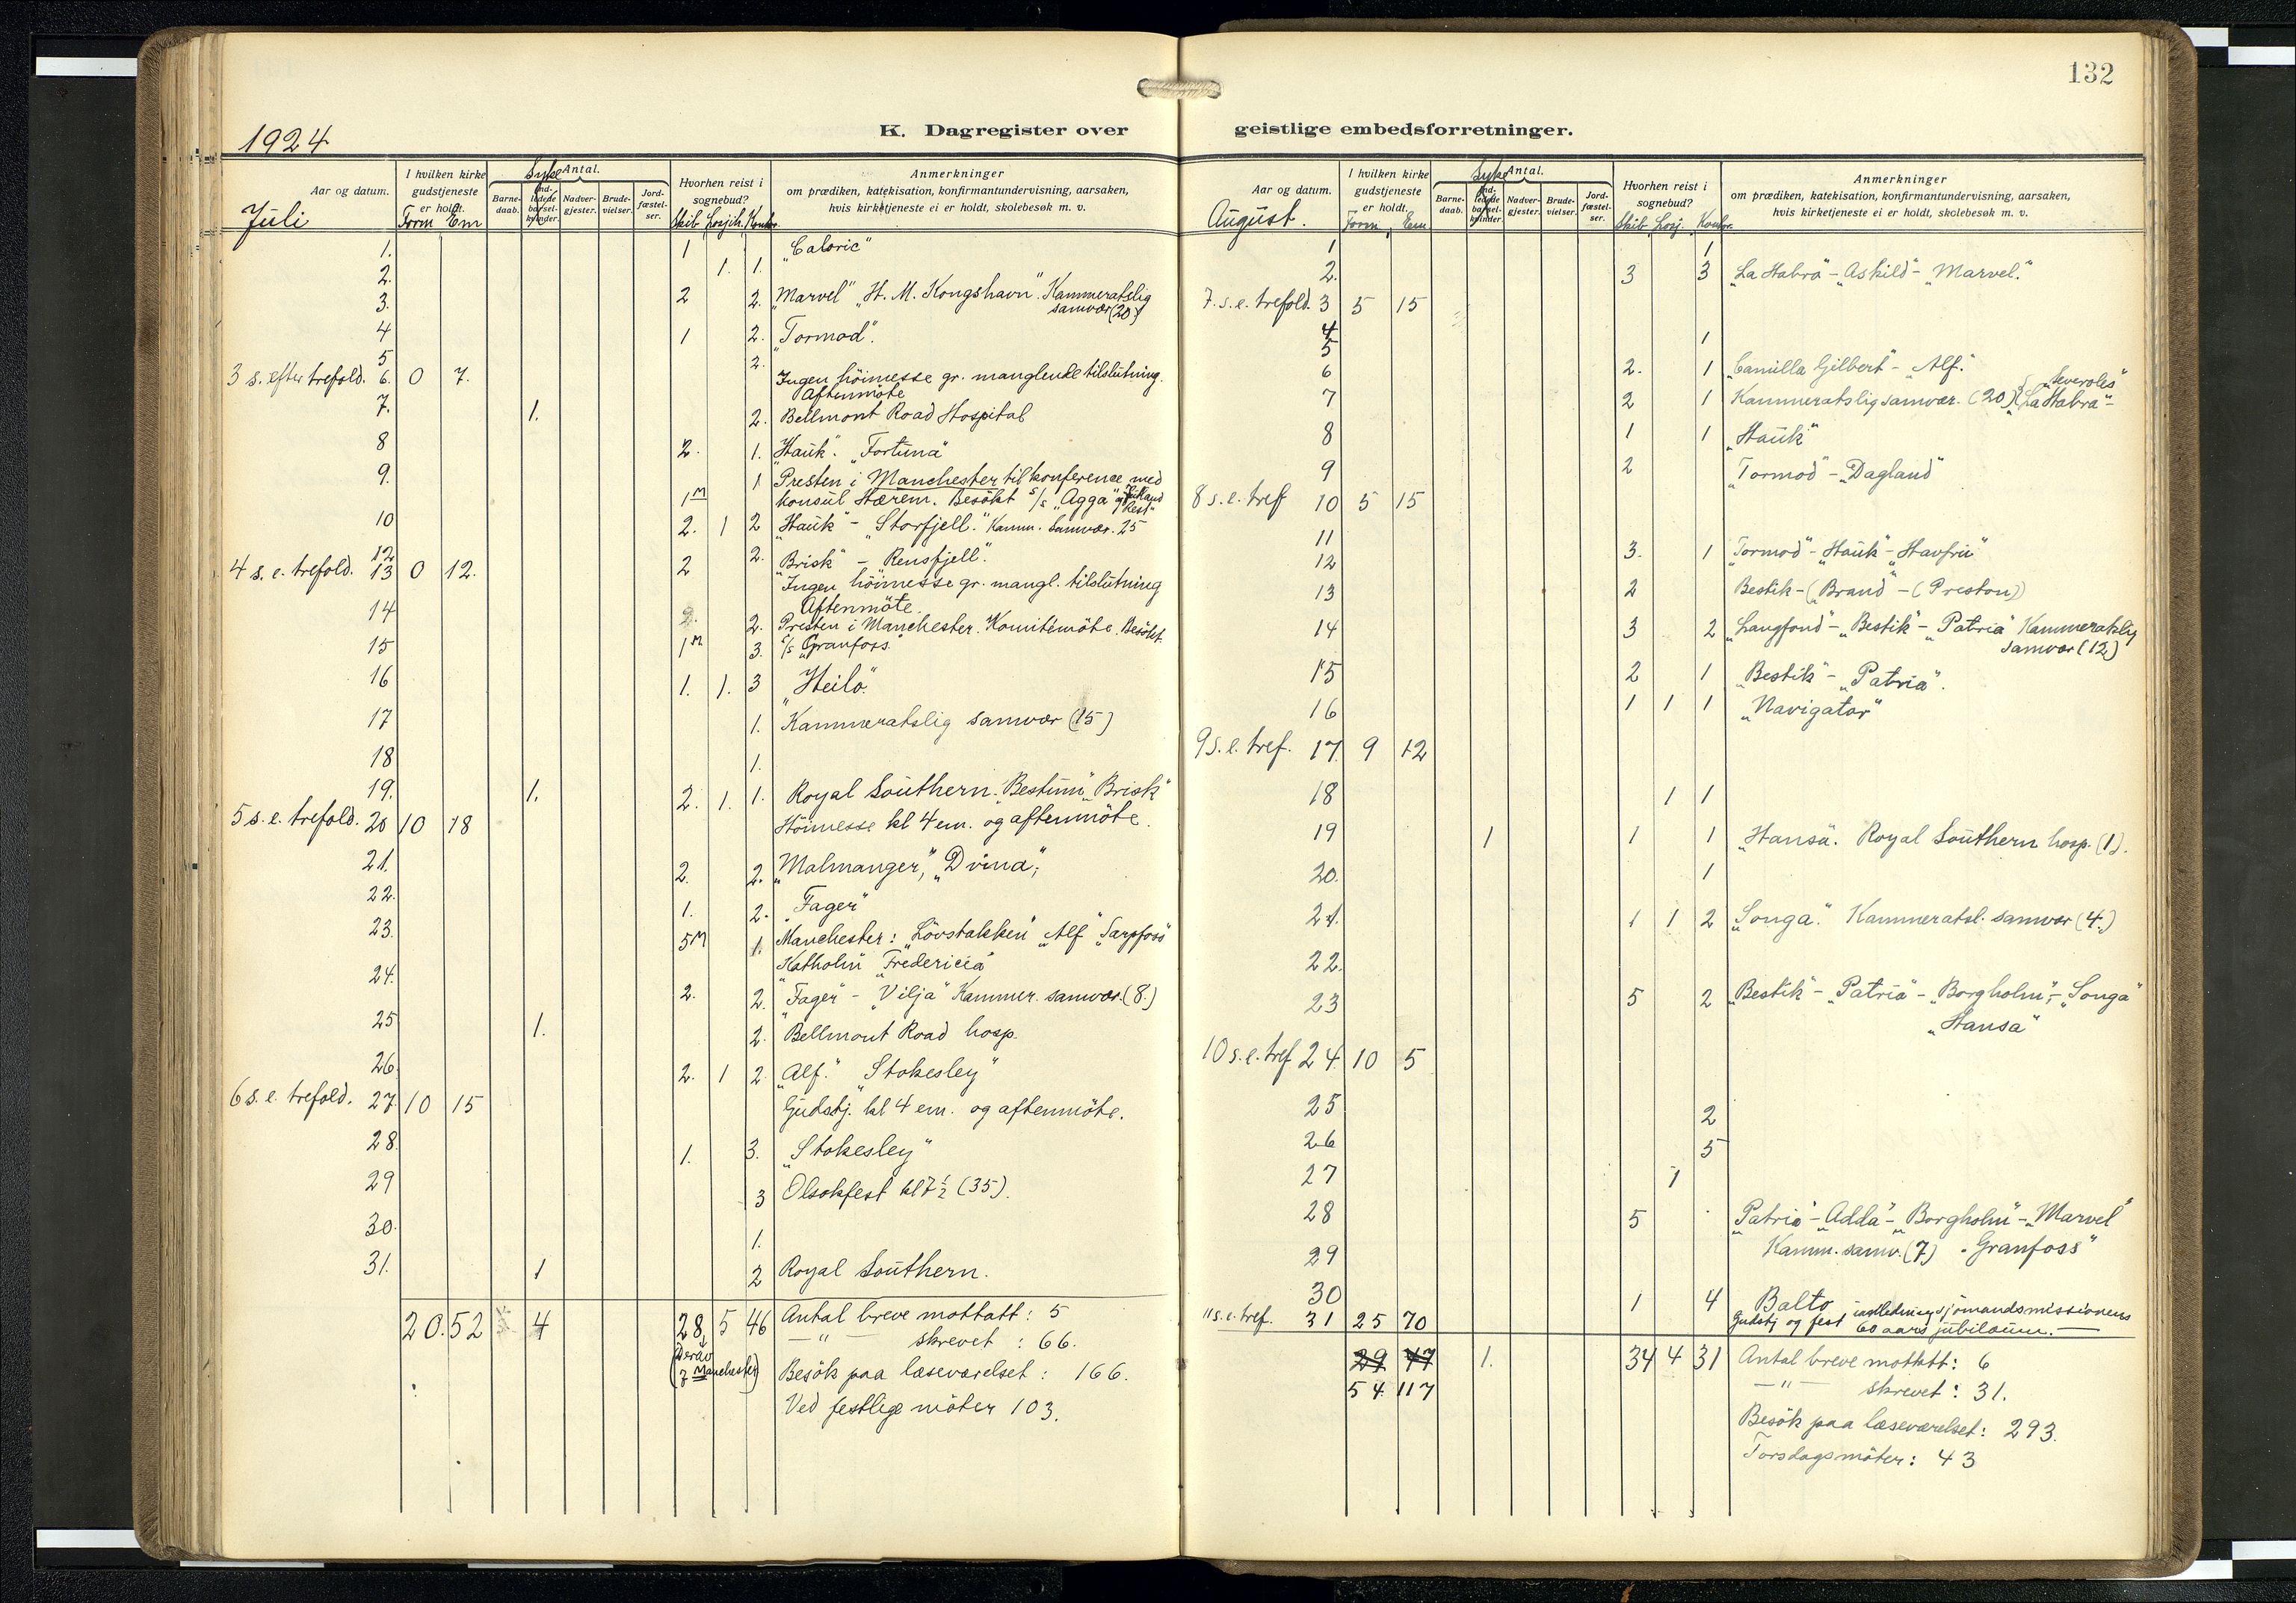 132
K. Dagregister over geistlige embedsforretninger.
1924
Aar og datum.
I hvilken kirke gudstjeneste er holdt.
Form Em
Syke
Antal.
Barne-daab.
Ind-ledede barsel-kvinder.
Nadver-gjester.
Brude-vielser.
Jord-fæstel-ser.
Hvorhen reist i sognebud?
Skib Losjih. Kontor.
Anmerkninger
om prædiken, katekisation, konfirmantundervisning, aarsaken,
hvis kirketjeneste ei er holdt, skolebesøk m. v.
Juli
1. 1 „Caloric"
2. 1. 1.
3. 2 2. „Marvel" „H. M. Kongshavn". Kammeratslig samvær (20)
4 1 2. „Tormod".
5 2.
3 s. efter trefold. 6. 0 7. Ingen höimesse gr. manglende tilslutning. Aftenmöte
7. 1. 2. Bellmont Road Hospital
8 2. 1. „Hauk". „Fortuna"
9. 1M 1 Presten i Manchester til konference med
konsul Hærem. Besökt s/s „Agga"
10 2. 1 2 „Hauk" - „Storfjell." Kamm. Samvær. 25
12 2 2. „Brisk" - „Rensfjell".
4 s. e. trefold. 13 0 12. Ingen höimesse gr. mangl. tilslutning
Aftenmöte.
14 2. 2. Presten i Manchester. Komitémöte. Besökt
15 1M 3. s/s „Granfoss"
16 1. 1. 3 „Heilo".
17 1. Kammeratslig samvær (15)
18 1.
19. 1. 2. 1. 1. Royal Southern. „Bestum" „Brisk"
5 s. e. trefold. 20 10 18 Höimesse kl 4 em. og aftenmöte.
21. 2. 2. „Malmanger", „Dvina",
22. 1. 2. „Fager"
23. 5M 1. Manchester: „Lövstakken" „Alf" „Sarpfoss"
„Katholm" „Fredericia"
24. 2. 2. „Fager" - „Vilja" Kammer. samvær. (8.)
25 1. 2. Bellmont Road hosp.
26. 2. 1 2. „Alf." „Stokesley"
6 s. e. trefold. 27. 10 15 Gudstj. kl 4 em. og aftenmöte.
28. 1. 3. „Stokesley"
29 3 Olsokfest kl 7 1/2 (35).
30. 1.
31. 1 2 Royal Southern.
20. 52 4 28 5 46 Antal breve mottatt: 5
—"— skrevet : 66.
(Derav 7 Manchester) Besök paa læseværelset : 166.
Ved festlige möter 103.
Aar og datum.
I hvilken kirke gudstjeneste er holdt.
Form Em
Syke
Antal.
Barne-daab.
Ind-ledede barsel-kvinder.
Nadver-gjester.
Brude-vielser.
Jord-fæstel-ser.
Hvorhen reist i sognebud?
Skib Losj. Kontor.
Anmerkninger
om prædiken, katekisation, konfirmantundervisning, aarsaken,
hvis kirketjeneste ei er holdt, skolebesøk m. v.
August.
1 1
2. 3 3 „La Habra" - „Askild" - „Marvel."
7. s. e. trefold. 3 5 15
4 1
5
6 2. 1 „Camilla Gilbert" - „Alf."
7 2 1 Kammeratslig samvær. (20) „La Habra" - „Severoles"
8 1 1 „Hauk"
9 2 „Tormod" - „Dagland"
8 s. e. tref 10 5 15
11
12 3. 1 „Tormod" - „Hauk" - „Havfru"
13 2 Bestik - („Brand" - (Preston)
14 3 2 „Langfond" - „Bestik" - „Patria" Kammeratslig samvær (12)
15 2 1 „Bestik" - „Patria".
16 1 1 1 „Navigator"
9 s. e. tref. 17. 9 12
18 1 1
19 1 1 1 „Hansa". Royal Southern hosp. (1).
20. 1
21. 1 1 2 „Songa." Kammeratsl. samvær (4.)
22.
23 5 2 „Bestik" - „Patria" - „Borgholm", - „Songa"
„Hansa"
10 s. e. tref 24. 10 5
25 2
26 5
27 1
28 5 „Patria" - „Adda" - „Borgholm" - „Marvel"
Kamm. samv. (7) „Granfoss"
29
30 1 4 Balto
11 s. e. tref. 31 25 70 Gudstj og fest i anledning sjömandsmissionens
60 aars jubilæum.
29 47 1. 34 4 31 Antal breve mottatt: 6
54 117 —"— skrevet : 31.
Besök paa læseværelset: 293.
Torsdagsmöter: 43